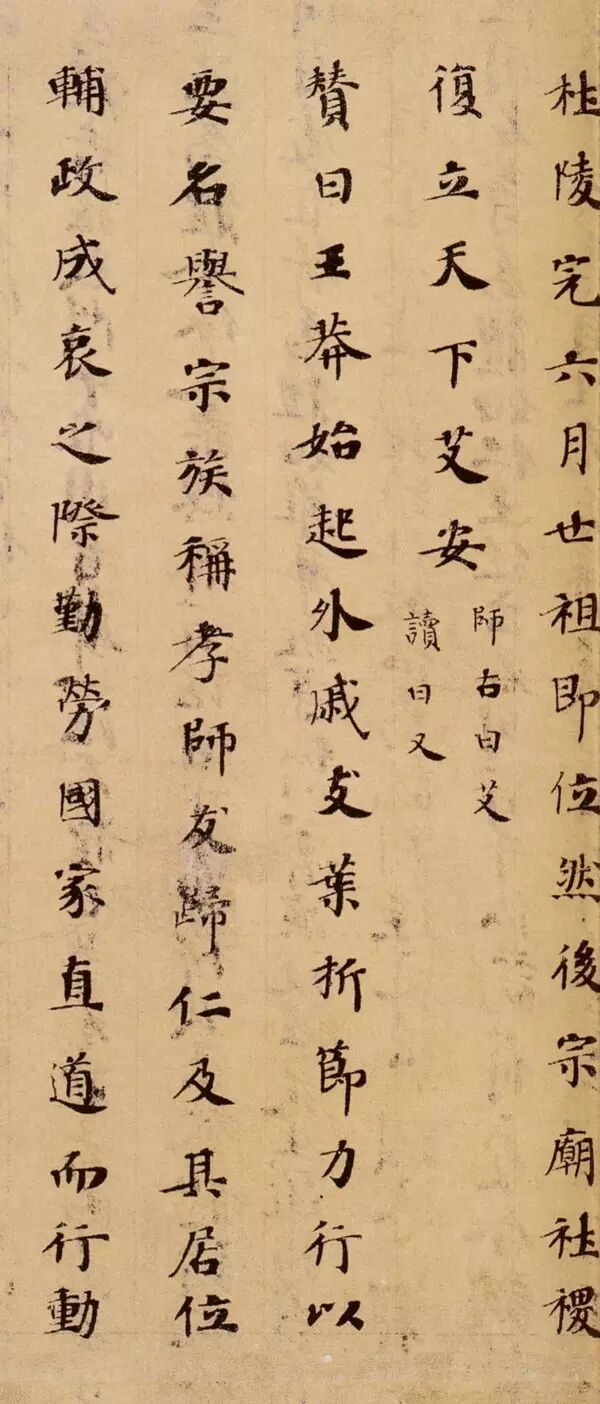 杜陵完六月世祖即位然後宗廟社稷
復立天下艾安
師古曰艾
讀曰又
賛曰王莽始起外戚支葉折節力行以
要名譽宗族稱孝師友歸仁及其居位
輔政成哀之際勤勞國家直道而行動